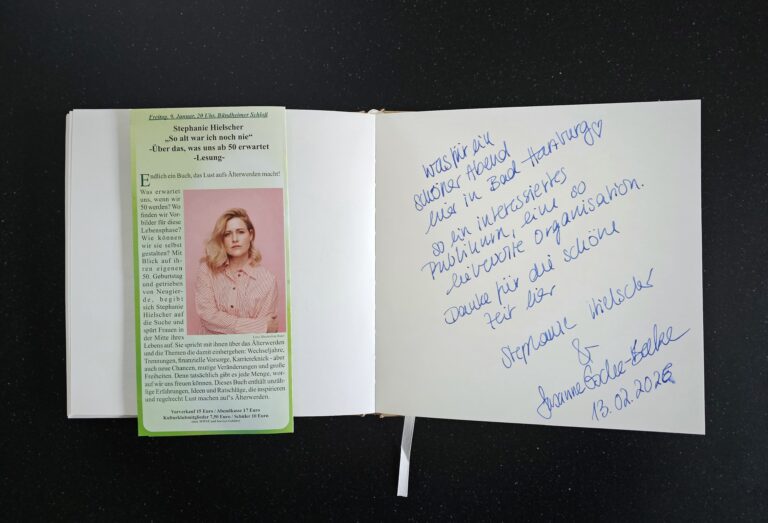 Freitag, 9. Januar, 20 Uhr, Bündheimer Schloß
Stephanie Hielscher
„So alt war ich noch nie“
-Über das, was uns ab 50 erwartet
-Lesung-
Endlich ein Buch, das Lust aufs Älterwerden macht!
Was erwartet
uns, wenn wir
50 werden? Wo
finden wir Vor-
bilder für diese
Lebensphase?
Wie können
wir sie selbst
gestalten? Mit
Blick auf ih-
ren eigenen
50. Geburtstag
und getrieben
von Neugier-
de, begibt
sich Stephanie
Hielscher auf
die Suche und
spürt Frauen in
der Mitte ihres
Lebens auf. Sie spricht mit ihnen über das Älterwerden
und die Themen die damit einhergehen: Wechseljahre,
Trennungen, finanzielle Vorsorge, Karriereknick - aber
auch neue Chancen, mutige Veränderungen und große
Freiheiten. Denn tatsächlich gibt es jede Menge, wor-
auf wir uns freuen können. Dieses Buch enthält unzäh-
lige Erfahrungen, Ideen und Ratschläge, die inspirieren
und regelrecht Lust machen auf's Älterwerden.
Vorverkauf 15 Euro / Abendkasse 17 Euro
Kulturklubmitglieder 7,50 Euro / Schüler 10 Euro
Was für ein
schöner Abend
hier in Bad Harzburg♡
So ein interessiertes
Publikum, eine so
liebevolle Organisation.
Danke für die schöne
Zeit hier
Stephanie Hielscher
&
Susanne
13.02.2026